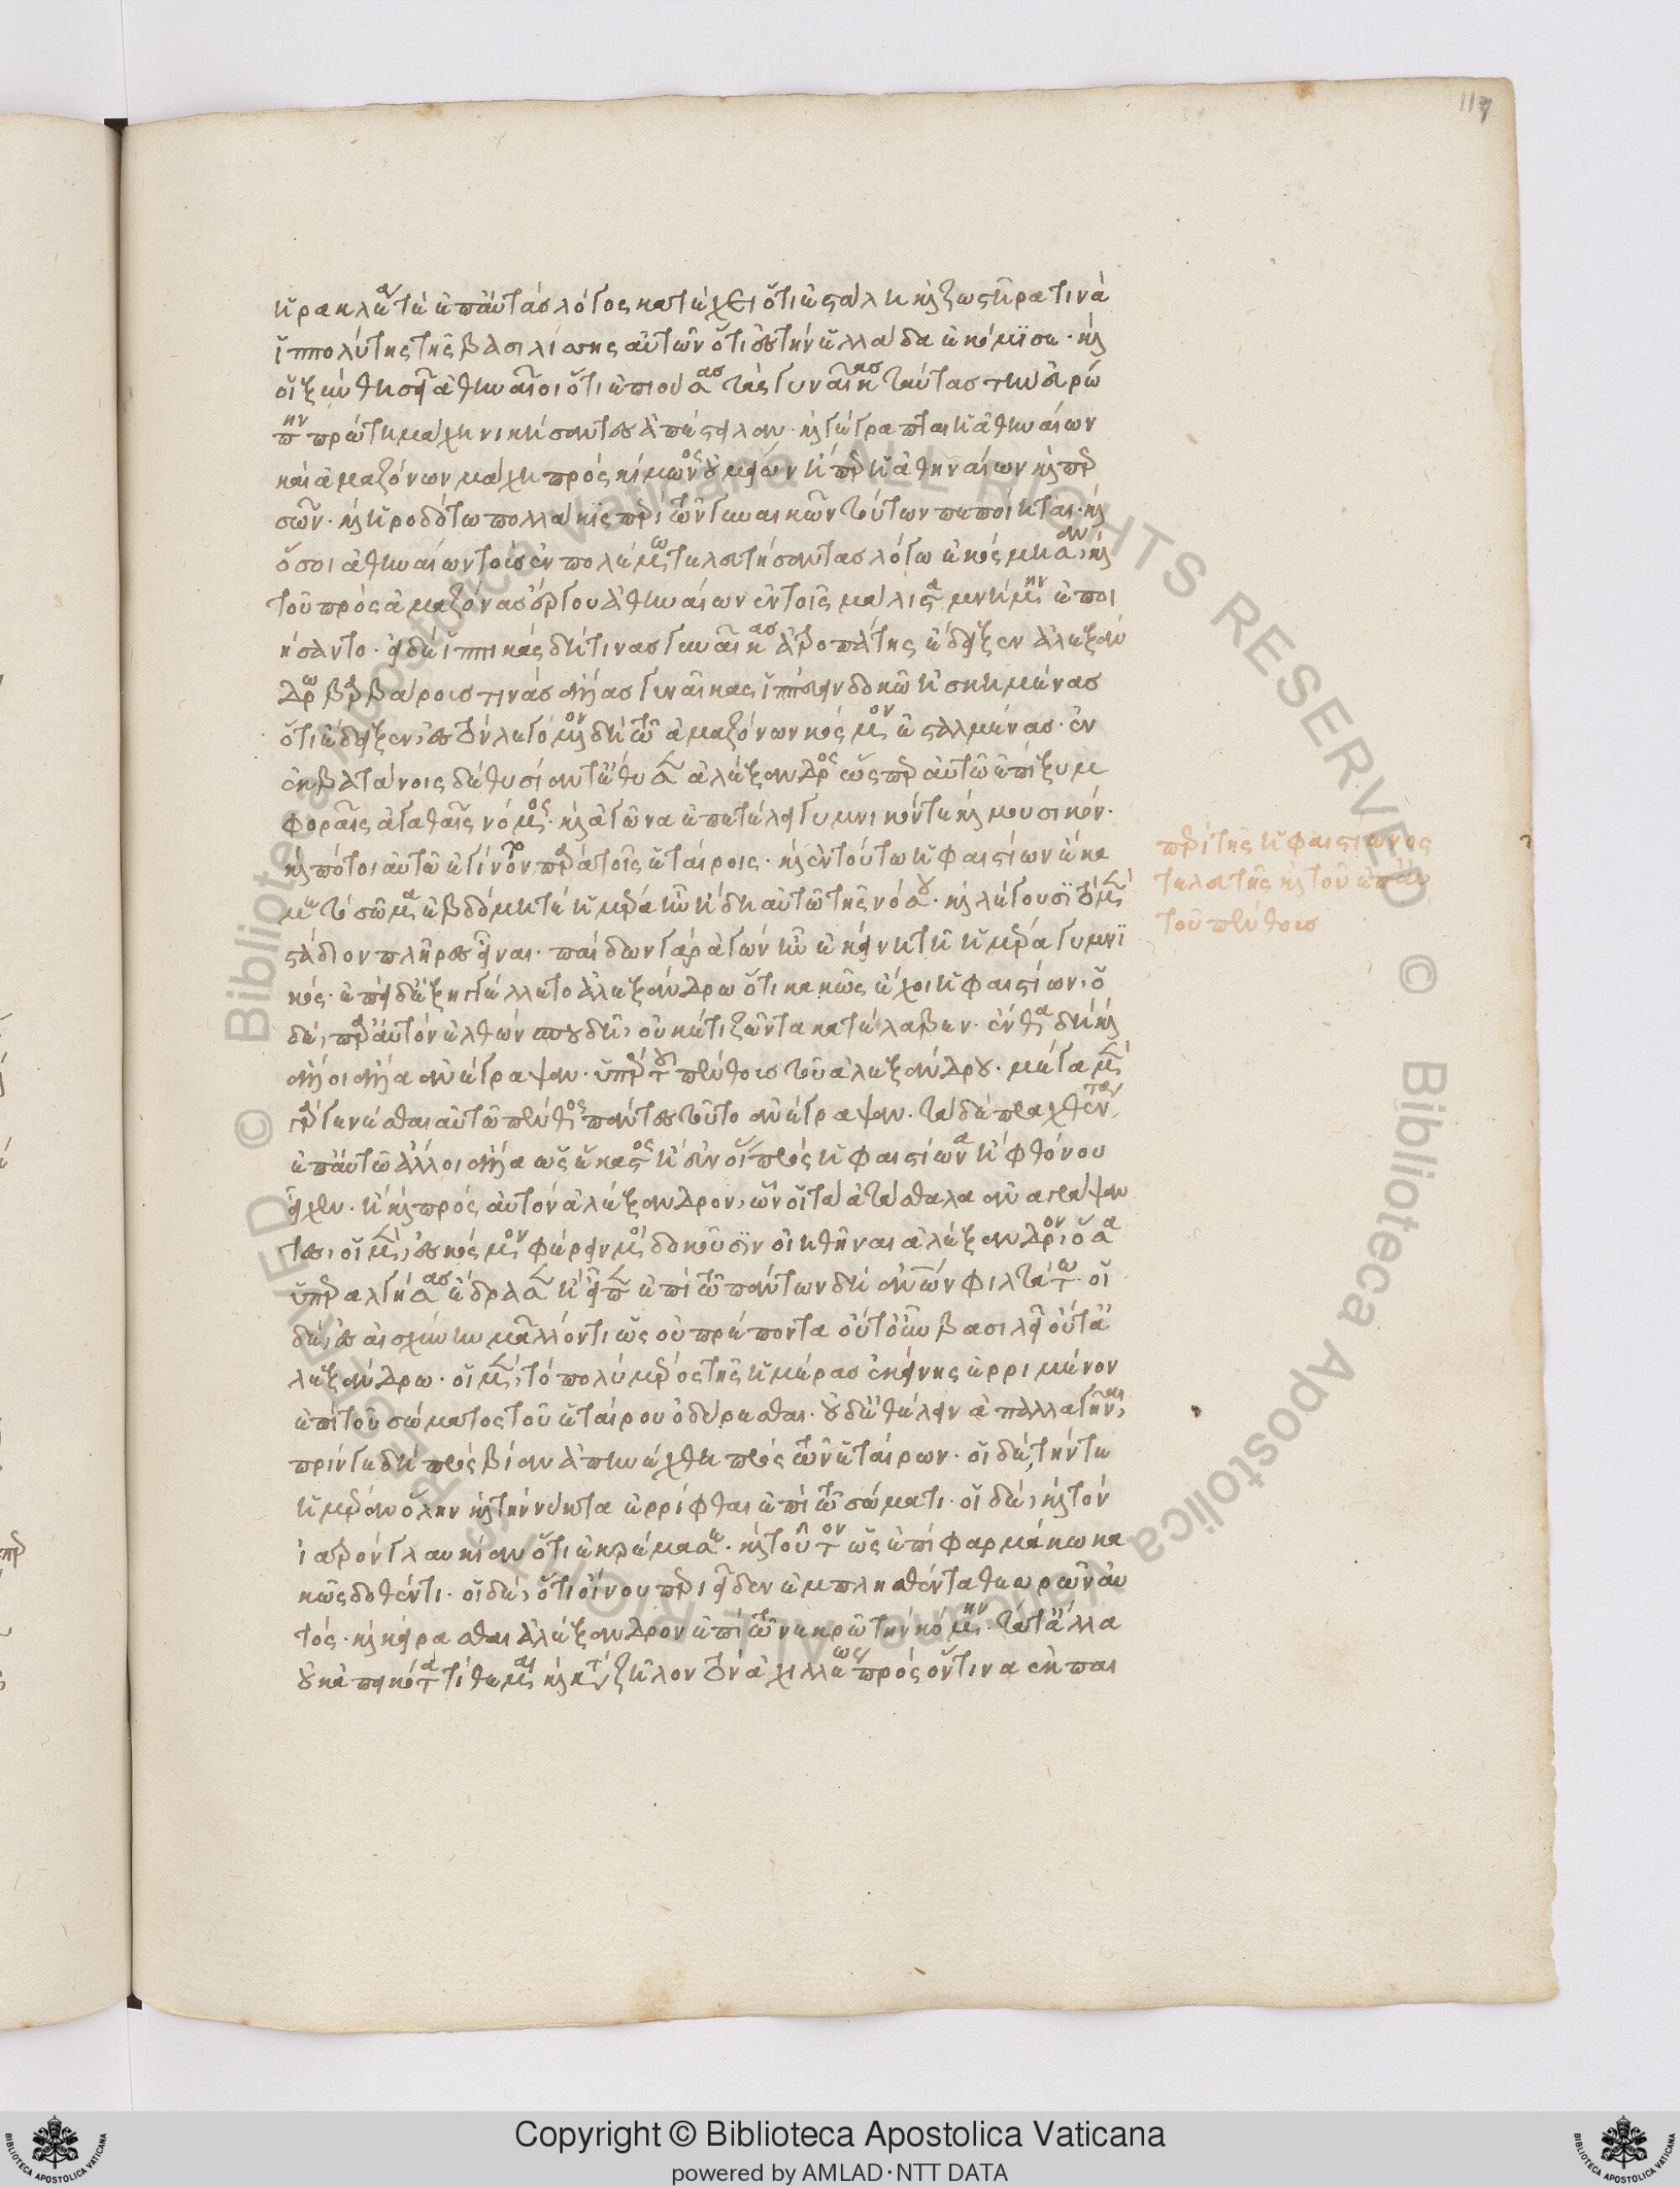 ἡρακλέα τε ἐπ' αὐτὰς λόγος κατέχει ὅτι ἐστάλη καὶ ζωστῆρά τινα
ἱππολύτης τῆς βασιλίσσης αὐτῶν ὅτι ἐς τὴν ἑλλάδα ἐκόμισε· καὶ
οἱ ξὺν θησεῖ ἀθηναῖοι ὅτι ἐπιούσας τὰς γυναῖκας ταύτας τὴν εὐρώ
πην πρῶτοι μάχη νικήσαντες ἀπέστειλαν· καὶ γέγραπται ἡ ἀθηναίων
καὶ ἀμαζόνων μάχη πρὸς κίμωνος οὐ μεῖον ἤπερ ἡ ἀθηναίων καὶ περ
σῶν· καὶ ἡροδότω πολλάκις περὶ τῶν γυναικῶν τούτων πεποίηται· καὶ
ὅσοι ἀθηναίων τοὺς ἐν πολέμω τελευτήσαντας λόγω ἐκόσμησαν, καὶ
τοῦ πρὸς ἀμαζόνας ἔργου ἀθηναίων ἐν τοῖς μάλιστα μνήμην ἐποι
ήσαντο· εἰ δὲ ἱππικὰς δή τινας γυναῖκας ἀτροπάτης ἔδειξεν ἀλεξάν
δρω βαρβάρους τινὰς ἄλλας γυναῖκας ἱππεύειν δοκῶ ἠσκημένας
ὅτι ἔδειξεν, ἐς τὸν λεγόμενον δὴ τῶν ἀμαζόνων κόσμον ἐσταλμένας· ἐν
ἐκβατάνοις δὲ θυσίαν τε ἔθυσεν ἀλέξανδρος ὡς περ αὐτῶ ἐπὶ ξυμ
φοραῖς ἀγαθαῖς νόμος· καὶ ἀγῶνα ἐπετέλει γυμνικόν τε καὶ μουσικόν·
καὶ πότοι αὐτῶ ἐγίνοντο παρὰ τοῖς ἑταίροις· καὶ ἐν τούτω ἡφαιστίων ἔκα
με τὸ σῶμα ἑβδόμη τε ἡμέρα ἦν ἤδη αὐτῶ τῆς νόσου· καὶ λέγουσι τὸ μὲν
στάδιον πλῆρες εἶναι· παίδων γὰρ ἀγὼν ἦν ἐκείνη τῆ ἡμέρα γυμνι
κός· ἐπεὶ δὲ ἐξηγγέλλετο ἀλεξάνδρω ὅτι κακῶς ἔχοι ἡφαιστίων, ὁ
δὲ, παρ' αὐτὸν ἐλθὼν σπουδῆ, οὐκέτι ζῶντα κατέλαβεν· ἔνθα δὴ καὶ
ἄλλοι ἄλλα ἀνέγραψαν· ὑπὲρ τοῦ πένθους τοῦ ἀλεξάνδρου· μέγα μὲν
γὰρ γενέσθαι αὐτῶ πένθος πάντες τοῦτο ἀνέγραψαν· τὰ δὲ πραχθέντα
ἐπ' αὐτῶ ἄλλοι ἄλλα ὡς ἕκαστος ἢ εὐνοίας πρὸς ἡφαιστίωνα ἢ φθόνου
εἶχεν· ἢ καὶ πρὸς αὐτὸν ἀλέξανδρον, ὧν οἱ τὰ ἀτάσθαλα ἀναγράψαν
τες, οἱ μὲν, ἐς κόσμον φέρειν μοι δοκοῦσιν οἰηθῆναι ἀλεξάνδρω, ὅσα
ὑπεραλγήσας ἔδρασεν ἢ εἶπεν ἐπὶ τῶ πάντων δὴ ἀνθρώπων φιλτάτω· οἱ
δὲ, ἐς αἰσχύνην μᾶλλόν τι ὡς οὐ πρέποντα οὔτ' οὖν βασιλεῖ οὔτε ἀ
λεξάνδρω· οἱ μὲν, τὸ πολὺ μέρος τῆς ἡμέρας ἐκείνης ἐρριμμένον
ἐπὶ τοῦ σώματος τοῦ ἑταίρου ὀδύρεσθαι· οὐδὲ ἐθέλειν ἀπαλλαγῆναι,
πρίν γε δὴ πρὸς βίαν ἀπηνέχθη πρὸς τῶν ἑταίρων· οἱ δὲ, τήν τε
ἡμέραν ὅλην καὶ τὴν νύκτα ἐρρίφθαι ἐπὶ τῶ σώματι· οἱ δὲ, καὶ τὸν
ἰατρὸν γλαυκίαν ὅτι ἐκρέμασε· καὶ τοῦτον ὡς ἐπὶ φαρμάκω κα
κῶς δοθέντι· οἱ δὲ, ὅτι οἴνου περιεῖδεν ἐμπλησθέντα θεωρῶν αὐ
τός· καὶ κείρασθαι ἀλέξανδρον ἐπὶ τῶ νεκρῶ τὴν κόμην· τά τε ἄλλα
οὐκ ἀπεικότα τίθεμαι καὶ κατὰ ζῆλον τὸν ἀχιλλέως πρὸς ὅντινα ἐκ παι
περὶ τῆς ἡφαιστίωνος
τελευτῆς καὶ τοῦ ἐπ' αὐ
τοῦ πένθους
117